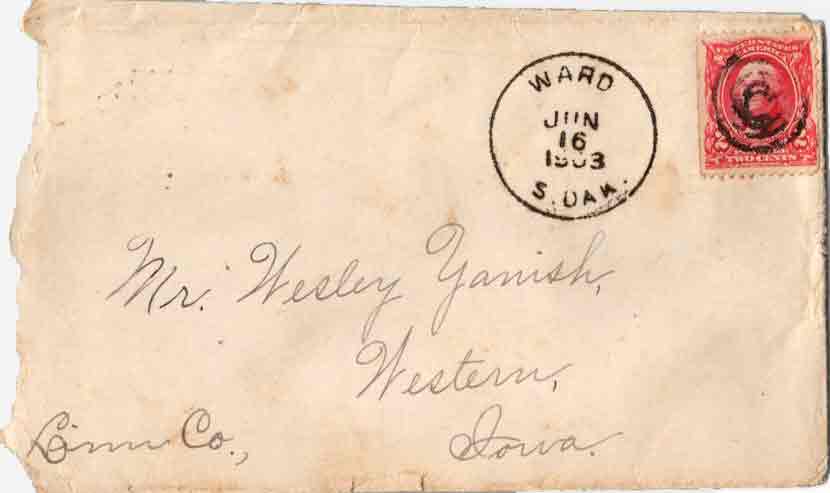 WARD
JUN
16
1903
S. DAK.
UNITED STATES
AMERICA
2 2
TWO CENTS
Mr. Wesley Yanish,
Western,
Linn Co., Iowa.